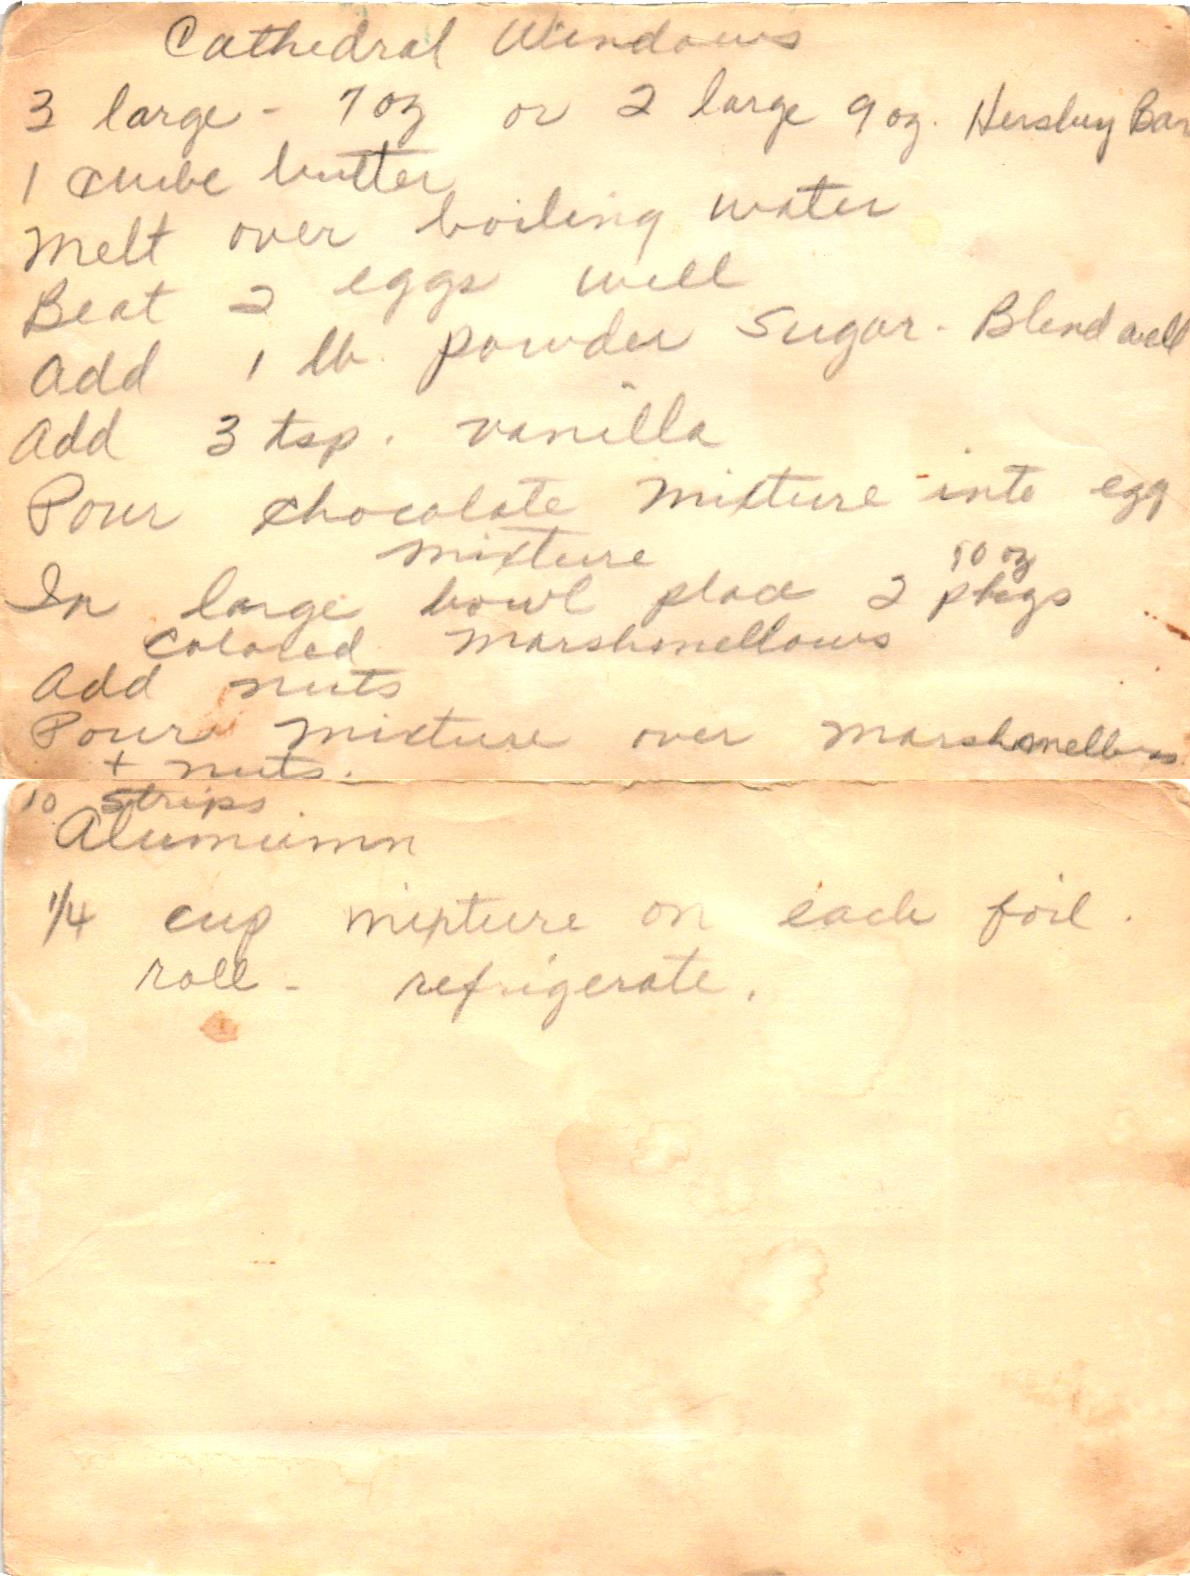 Cathedral Windows
3 large - 7 oz or 2 large 9 oz. Hershey Bar
1 cube butter
Melt over boiling water
Beat 2 eggs well
Add 1 lb. powder sugar - Blend well
Add 3 tsp. vanilla
Pour chocolate mixture into egg
mixture
10 oz
In large bowl place 2 pkgs
colored marshmellows
Add nuts
Pour mixture over marshmellows
+ nuts.
10 strips
Alumiumn
1/4 cup mixture on each foil.
roll - refrigerate.